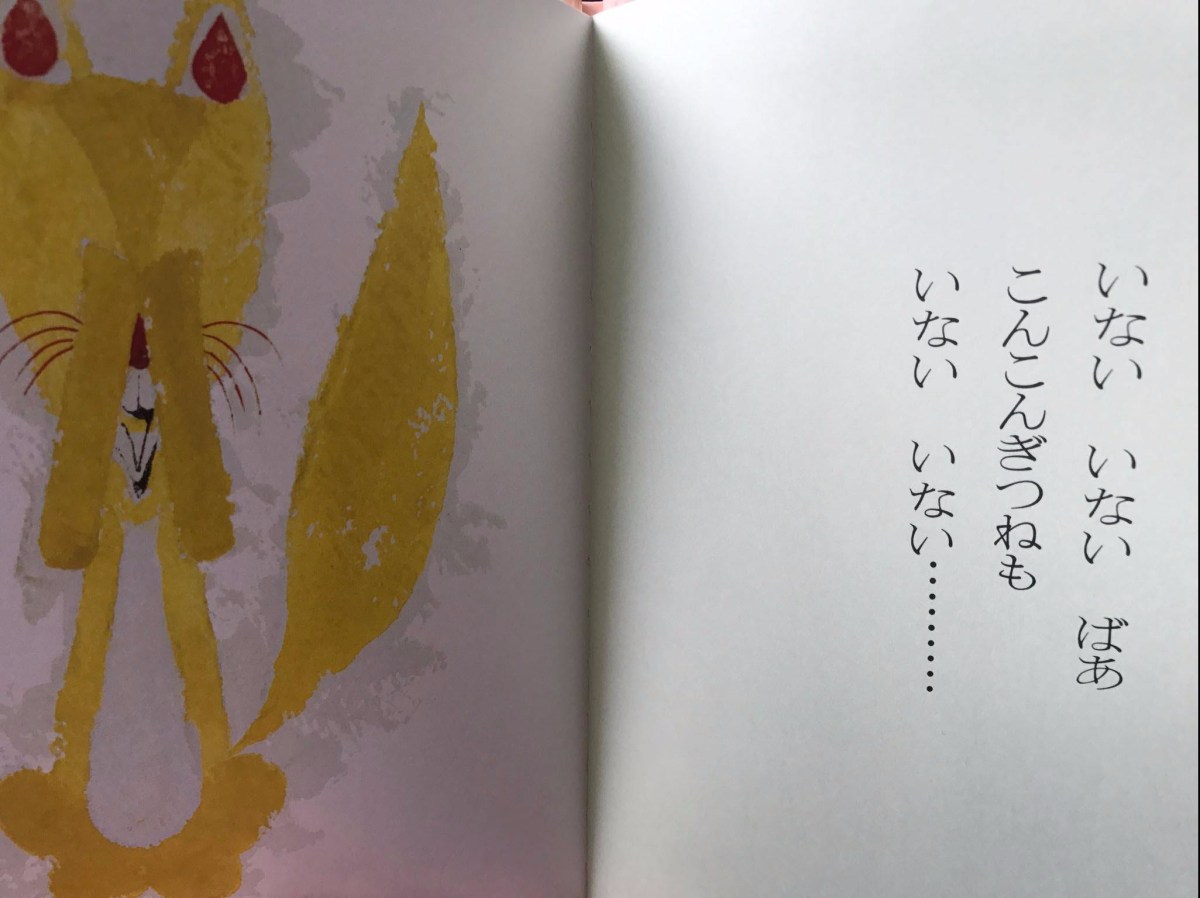 いない　いない　ばあ
こんこんぎつねも
いない　いない…………